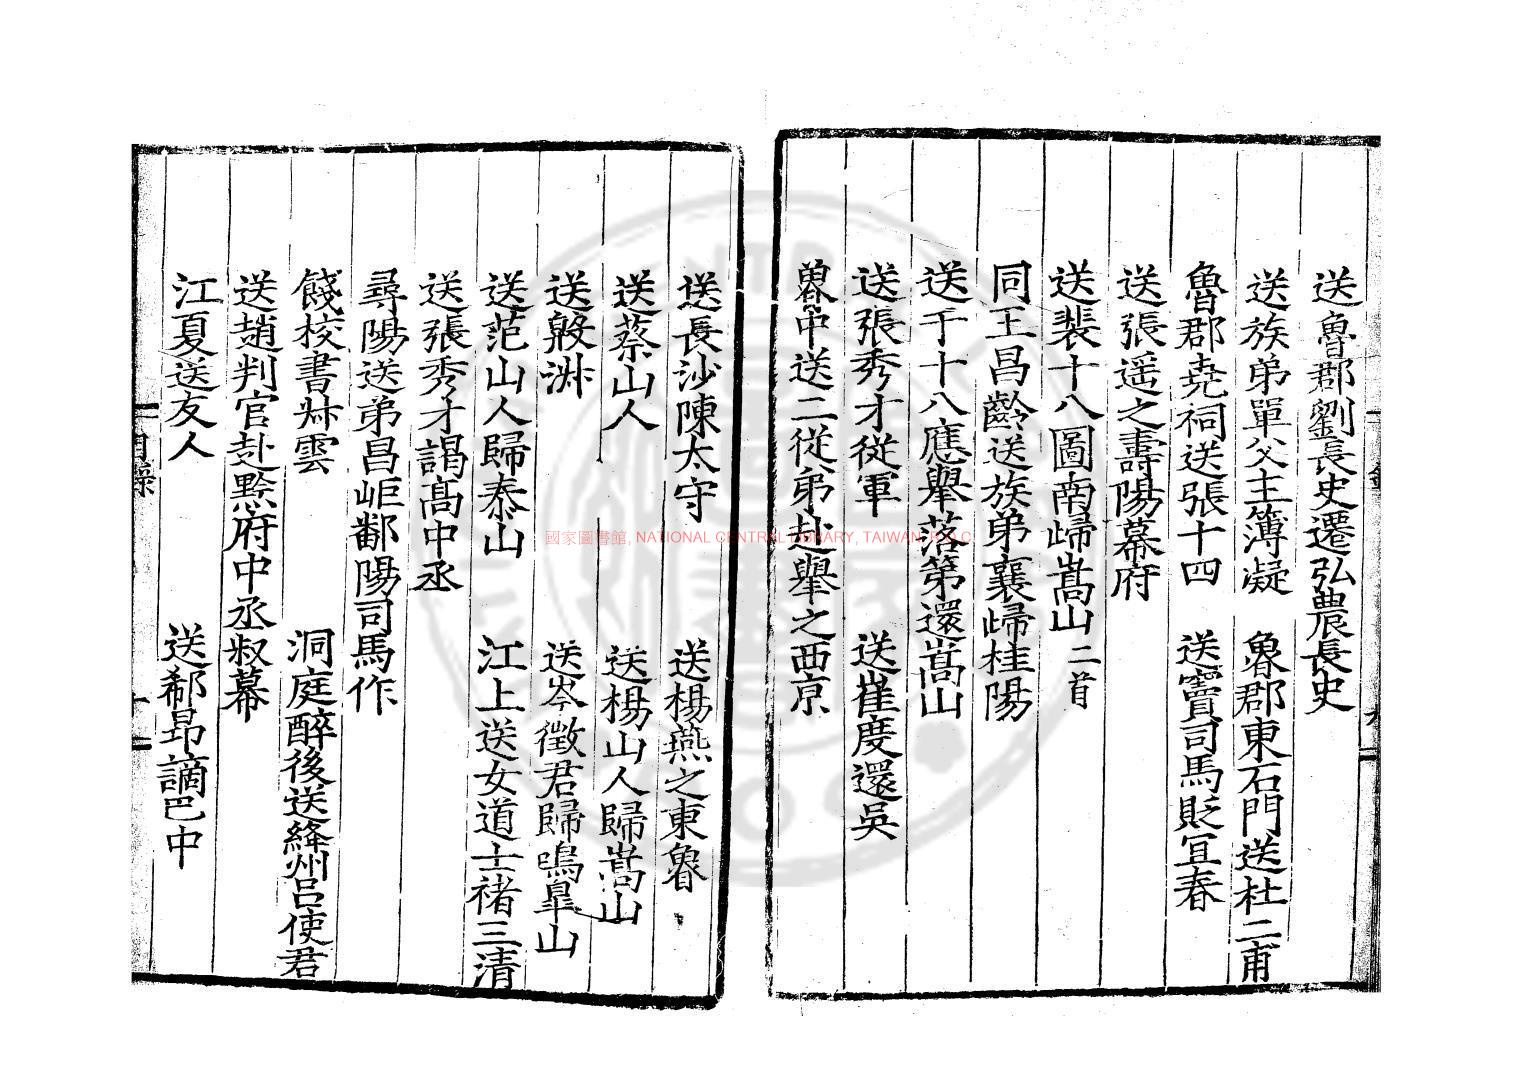 送魯郡劉長史遷弘農長史
送族弟單父主簿凝 魯郡東石門送杜二甫
魯郡堯祠送張十四 送竇司馬貶宜春
送張遥之壽陽幕府
送裴十八圖南歸嵩山二首
同王昌齡送族弟襄歸桂陽
送于十八應舉落第還嵩山
送張秀才從軍 送崔度還吳
魯中送二從弟赴舉之西京
送長沙陳太守 送楊燕之東魯
送蔡山人 送楊山人歸嵩山
送殷淑 送岑徵君歸鳴臯山
送范山人歸泰山 江上送女道士褚三清
送張秀才謁高中丞
尋陽送弟昌岠鄱陽司馬作
餞校書叔雲 洞庭醉後送絳州呂使君
送趙判官赴黔府中丞叔幕
江夏送友人 送郗昂謫巴中
目錄
國家圖書館, NATIONAL CENTRAL LIBRARY, TAIWAN, R.O.C